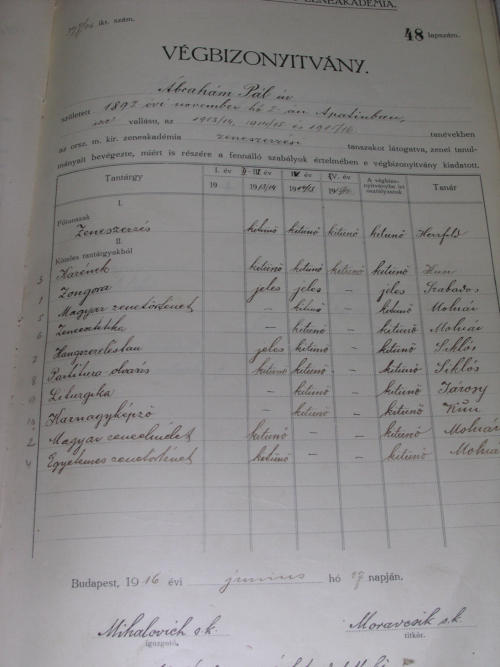 ZENEAKADÉMIA.
ikt. szám. 48 lapszám.
VÉGBIZONYITVÁNY.
Ábrahám Pál úr
született 1892 évi november hó 2-án Apatinban,
izr vallásu, az 1913/14, 1914/15 és 1915/16 tanévekben
az orsz. m. kir. zeneakadémia zeneszerzési tanszakot látogatva, zenei tanul-
mányait bevégezte, miért is részére a fennálló szabályok értelmében e végbizonyitvány kiadatott.
Tantárgy I. év 19 II-III év 1913/14 IV év 1914/15 IV. év 1915/16 A végbizo-nyitványba irt osztályzatok Tanár
I.
Főtanszak
Zeneszerzés kitünő kitünő kitünő kitünő Herzfeld
II.
Köteles tantárgyakból
3 Karének kitünő kitünő kitünő kitünő Kun
1 Zongora jeles jeles – jeles Szabados
5 Magyar zenetörténet – kitünő – kitünő Molnár
6 Zeneesztétika kitünő – kitünő Molnár
7 Hangszereléstan jeles kitünő – kitünő Siklós
8 Partitura olvasás kitünő kitünő – kitünő Siklós
9 Liturgika – kitünő – kitünő Járosy
10 Karnagyképző kitünő – kitünő Kun
2 Magyar zeneelmélet kitünő – kitünő Molnár
4 Egyetemes zenetörténet kitünő – – kitünő Molnár
Budapest, 1916 évi junius hó 27 napján.
Mihalovich s.k. Moravcsik s.k.
igazgató. titkár.